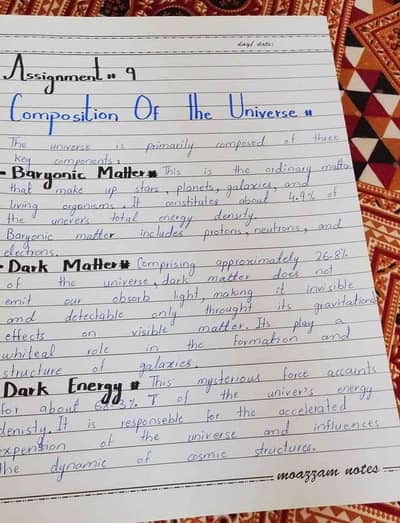 day/ date:
Assignment # 9
Composition Of the Universe #
The universe is primarily composed of three
key components:
- Baryonic Matter # This is the ordinary matter
that make up stars, planets, galaxies, and
living organisms. It constitutes about 4.9% of
the univers total energy density.
Baryonic matter includes protons, neutrons, and
electrons.
- Dark Matter # Comprising approximately 26.8%
of the universe, dark matter does not
emit our absorb light, making it invisible
and detectable only throught its gravitational
effects on visible matter. Its play a
whiteal role in the formation and
structure of galaxies.
Dark Energy # This mysterious force accounts
for about of the univer's energy
denisty. It is responseble for the accelerated
expension of the universe and influences
the dynamic of cosmic structures.
moazzam notes